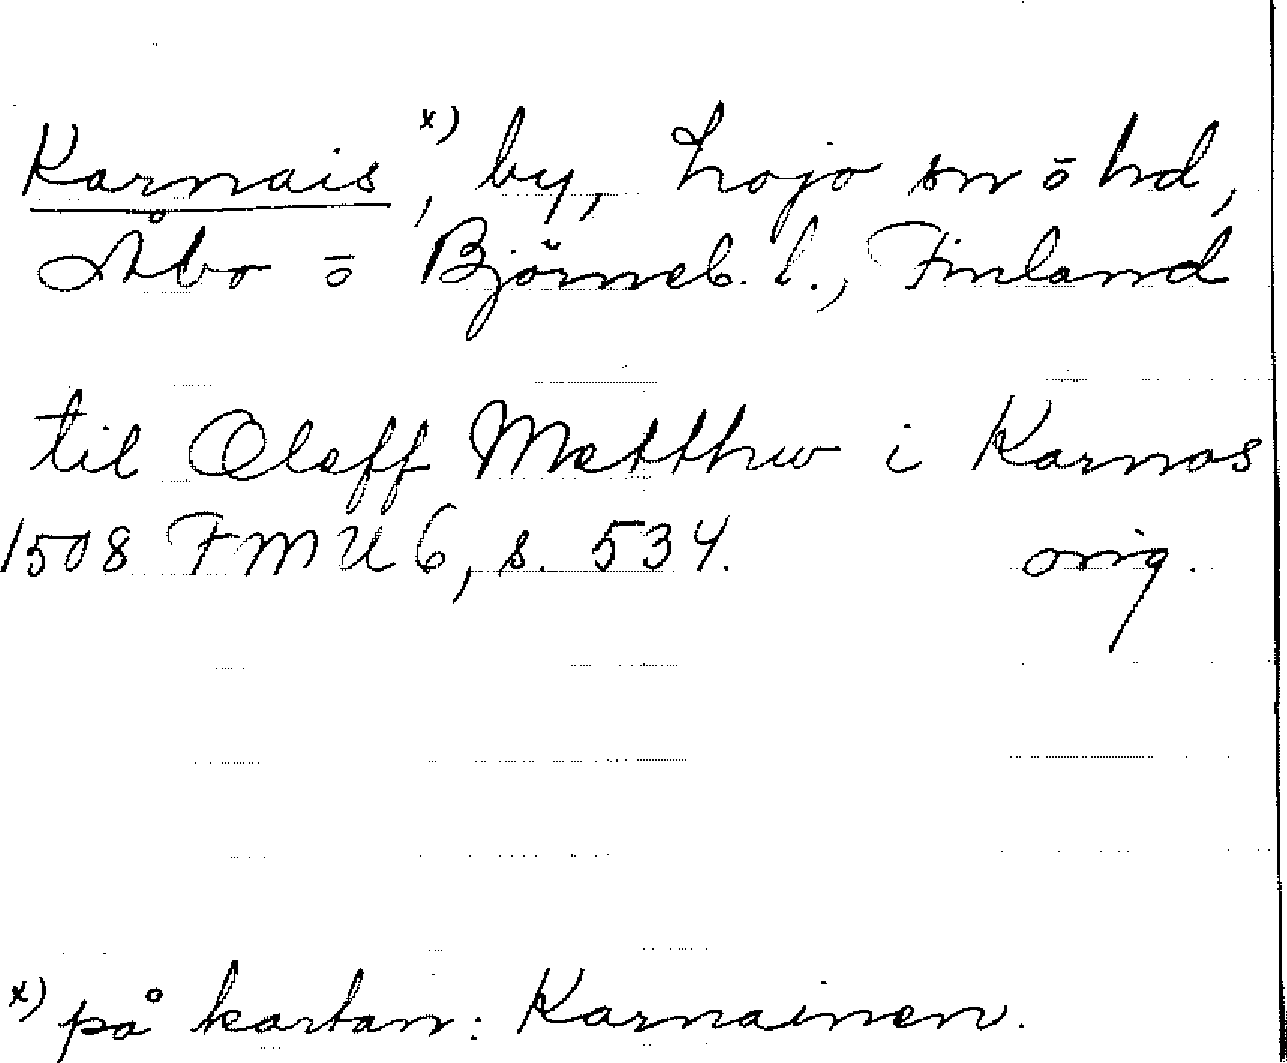 Karnais x), by, Lojo sn o hd,
Åbo o Björneb. l., Finland
til Oleff Matthw i Karnas
1508 FMU 6, s. 534. orig.
x) på kartan: Karnainen.